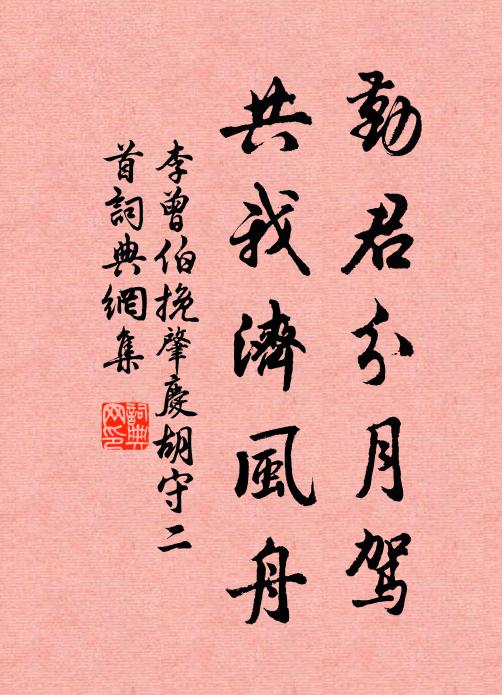 勤君分月駕
共我濟風舟
李曾伯挽肇慶胡守二
首詞典網集
詞典
网印